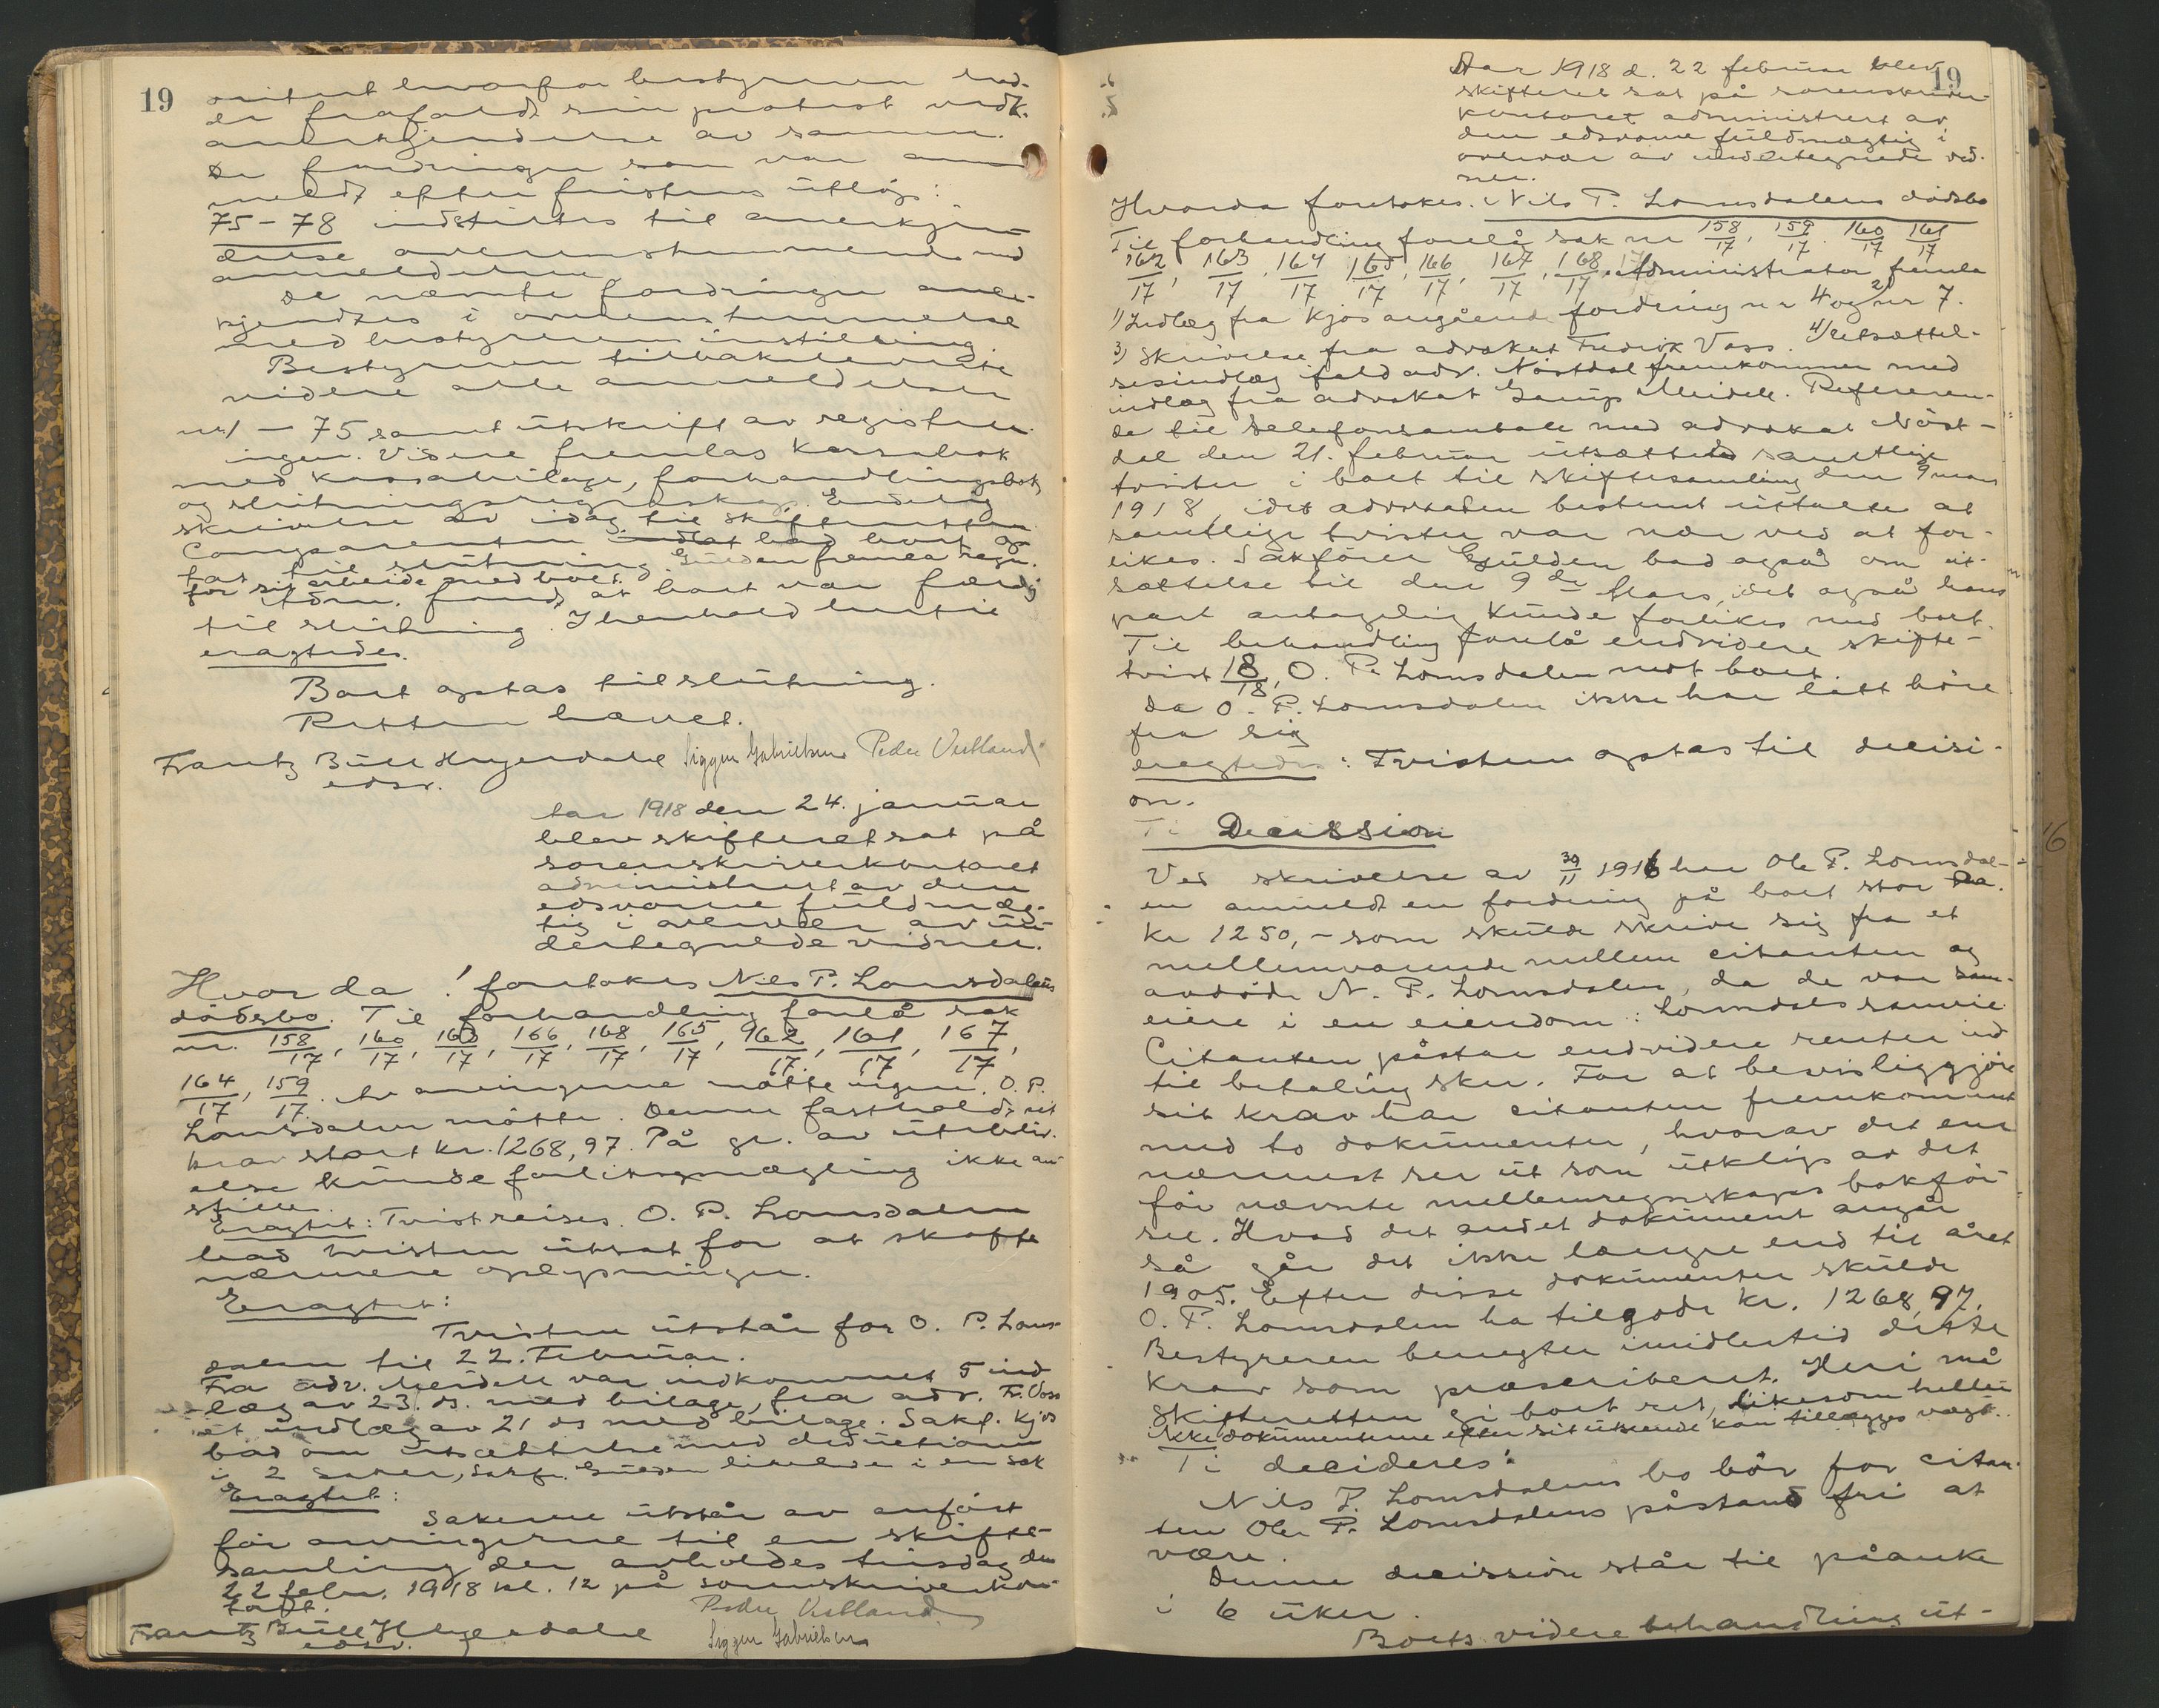 19
hvorfor bestyreren
der frafaldt sin protest vedk.
anerkjendelse av samme.
De fordringer som var an
meldt efter fristens utløp:
75-78 indstiltes til anerkjen
delse overensstemmende med
anmeldelsen.
De nævnte fordringer aner-
kjendtes i overensstemmelse
med bestyrerens instilling.
Bestyreren tilbakeleverte
videre alle anmeldelser
nr 1 - 75 samt utskrift av registre
ingen. Videre fremlas kassabok
med kassabilage, forhandlingsbok
og slutningsregnskap. Endelig
skrivelse av idag til skifteretten
Comparenten bad boet op
tat til slutning. Gulden fremla regn.
for sit arbeide med boet.
fandt at boet var færdig
til slutning. I henhold hertil
eragtedes.
Boet optas til slutning.
Retten hævet.
Frantz Bull Hygerdahl Sigge Gabrielsen Peder Vestland
edsv.
Aar 1918 den 24. januar
blev skifteret sat på
sorenskriverkontoret
administrert av den
edsvorne fuldmæg-
tig i overvær av un-
dertegnede vidner.
Hvor da! foretokes Nils P. Lomsdalens
dødsbo. Til forhandling forelå sak
nr. 158/17, 160/17, 163/17, 166/17, 168/17, 165/17, 162/17, 161/17, 167/17,
164/17, 159/17. Av arvingerne møtte ingen. O. P.
Lomsdalen møtte. Denne fastholdt sit
krav stort kr. 1268,97. På gr. av utebliv-
else kunde forliksmægling ikke an-
stilles.
Eragtet: Tvist reises. O. P. Lomsdalen
bad tvisten utsat for at skaffe
nærmere oplysninger.
Eragtet:
Tvisten utstår for O. P. Loms-
dalen til 22. Februar.
Fra adv. Meidell var indkommet 5 ind
læg av 23. ds. med bilage, fra adv. Fr. Voss
et indlæg av 21 ds med bilage. Sakf. Kjos
bad om utsættelse med deduction
i 2 saker, Sakf. Gulden likeledes i en sak
Eragtet:
Sakerne utstår av anført
for arvingerne til en skifte-
samling der avholdes tirsdag den
22 febr. 1918 kl. 12 på sorenskriverkon-
toret.
Peder Vestland
Frantz Bull Hygerdahl Sigge Gabrielsen
edsv.
19
Aar 1918 d. 22 februar blev
skifteret sat på sorenskriver-
kontoret administrert av
den edsvorne fuldmægtig i
overvær av undertegnede vid-
ner.
Hvorda foretokes. Nils P. Lomsdalens dødsbo
Til forhandling forelå sak nr 158/17, 159/17. 160/17 161/17
162/17, 163/17, 164/17 165/17, 166/17, 167/17, 168/17. Administrator fremla
1) Indlæg fra Kjos angående fordring nr 4 og 2) nr 7.
3) Skrivelse fra advokat Fredrik Voss. 4) Utsættel-
sesindlæg ifald adv. Nøstdal fremkommer med
indlæg fra advokat Meidell. Referere-
de til telefonsamtale med advokat Nøst-
dal den 21. februar utsættes samtlige
tvister i boet til skiftesamling den 9 mars
1918, idet advokaten bestemt uttalte at
samtlige tvister var nær ved at for-
likes. Sakfører Gulden bad også om ut-
sættelse til den 9de Mars, idet også hans
part antagelig kunde forlikes med boet.
Til behandling forelå endvidere skifte-
tvist 18/18, O. P. Lomsdalen mot boet.
Da O. P. Lomsdalen ikke har latt høre
fra sig
eragtedes: Tvisten optas til decisi-
on.
Ti Decission
Ved skrivelse av 30/11 1916 har Ole P. Lomsdal-
en anmeldt en fordring på boet stor
kr 1250,- som skulde skrive sig fra et
mellemværende mellem citanten og
avdøde N. P. Lomsdalen, da de var sam-
eiere i en eiendom: Lomsdals sameie
Citanten påstår endvidere renter ind
til betaling sker. For at bevisliggjøre
sit krav har citanten fremkommet
med to dokumenter, hvorav det ene
nærmest ser ut som utklip av det
før nævnte mellemregnskaps bokfør-
sel. Hvad det andet dokument angår
så går det ikke længre end til året
1905. Efter disse dokumenter skulde
O. P. Lomsdalen ha tilgode kr. 1268,97.
Bestyreren benegter imidlertid dette
krav som præscriberet. Heri må
Skifteretten gi boet ret, likesom heller
ikke dokumenterne efter sit utseende kan tillægges vægt.
Ti decideres:
Nils P. Lomsdalens bo bør for citan-
ten Ole P. Lomsdalens påstand fri at
være.
Denne decission står til påanke
i 6 uker.
Boets videre behandling ut-
16